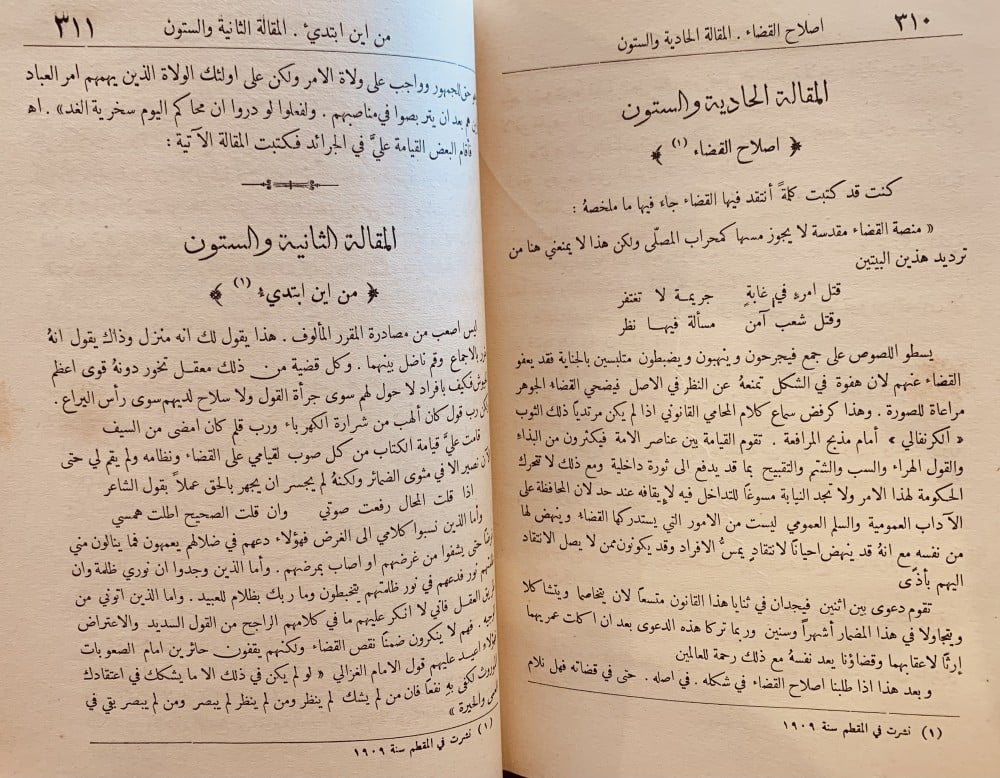 ٣١٠
اصلاح القضاء . المقالة الحادية والستون
المقالة الحادية والستون
﴿ اصلاح القضاء (١) ﴾
كنت قد كتبت كلمةً أنتقد فيها القضاء جاء فيها ما ملخصهُ :
« منصة القضاء مقدسة لا يجوز مسها كمحراب المصلّى ولكن هذا لا يمنعني هنا من
ترديد هذين البيتين
قتل امرءٍ في غابةٍ جريمة لا تغتفر
وقتل شعب آمن مسألة فيها نظر
يسطو اللصوص على جمع فيجرحون وينهبون ويضبطون متلبسين بالجناية فقد يعفو
القضاء عنهم لان هفوة في الشكل تمنعهُ عن النظر في الاصل فيضحي القضاء الجوهر
مراعاة للصورة . وهذا كرفض سماع كلام المحامي القانوني اذا لم يكن مرتديًا ذلك الثوب
« الكرنفالي » أمام مذبح المرافعة . تقوم القيامة بين عناصر الامة فيكثرون من البذاء
والقول الهراء والسب والشتم والتقبيح بما قد يدفع الى ثورة داخلية ومع ذلك لا تتحرك
الحكومة لهذا الامر ولا تجد النيابة مسوغًا للتداخل فيه لإيقافه عند حد لان المحافظة على
الآداب العمومية والسلم العمومي ليست من الامور التي يستدركها القضاء وينهض لها
من نفسه مع انهُ قد ينهض احيانًا لانتقادٍ يمسُّ الافراد وقد يكونون ممن لا يصل الانتقاد
اليهم بأذًى
تقوم دعوى بين اثنين فيجدان في ثنايا هذا القانون متسعًا لان يتخاصما ويتشاكلا
ويتجاولا في هذا المضمار أشهرًا وسنين وربما تركا هذه الدعوى بعد ان اكلت عمريهما
إرثًا لاعقابهما وقضاؤنا يعد نفسهُ مع ذلك رحمة للعالمين
وبعد هذا اذا طلبنا اصلاح القضاء في شكله . في اصله . حتى في قضاته فهل نلام
(١) نشرت في المقطم سنة ١٩٠٩
من اين ابتدئ . المقالة الثانية والستون
٣١١
حق للجمهور وواجب على ولاة الامر ولكن على اولئك الولاة الذين يهمهم امر العباد
هم بعد ان يتربصوا في مناصبهم . ولفعلوا لو دروا ان محاكم اليوم سخرية الغد » . اه
فأقام البعض القيامة عليَّ في الجرائد فكتبت المقالة الآتية :
المقالة الثانية والستون
﴿ من اين ابتدئ (١) ﴾
ليس اصعب من مصادرة المقرر المألوف . هذا يقول لك انه منزل وذاك يقول انهُ
بالاجماع وقم ناضل بينهما . وكل قضية من ذلك معقل تخور دونهُ قوى اعظم
فكيف بافراد لا حول لهم سوى جرأة القول ولا سلاح لديهم سوى رأس اليراع .
رب قول كان ألهب من شرارة الكهرباء ورب قلم كان امضى من السيف
قامت عليَّ قيامة الكتاب من كل صوب لقيامي على القضاء ونظامه ولم يقم لي حتى
الآن نصير الا في مثوى الضمائر ولكنهُ لم يجسر ان يجهر بالحق عملاً بقول الشاعر
اذا قلت المحال رفعت صوتي وان قلت الصحيح اطلت همسي
وأما الذين نسبوا كلامي الى الغرض فهؤلاء دعهم في ضلالهم يعمهون فما ينالون مني
حتى يشفوا من غرضهم او اصاب بمرضهم . وأما الذين وجدوا ان نوري ظلمة وان
نور فدعهم في نور ظلمتهم يتخبطون وما ربك بظلام للعبيد . واما الذين اتوني من
طريق العقل فاني لا انكر عليهم ما في كلامهم الراجح من القول السديد والاعتراض
فهم لا ينكرون ضمنًا نقص القضاء ولكنهم يقفون حائرين امام الصعوبات
اعيد عليهم قول الامام الغزالي « لو لم يكن في ذلك الا ما يشكك في اعتقادك
الموروث لكفى بهِ نفعًا فان من لم يشك لم ينظر ومن لم ينظر لم يبصر ومن لم يبصر بقي في
العمى والحيرة »
(١) نشرت في المقطم سنة ١٩٠٩